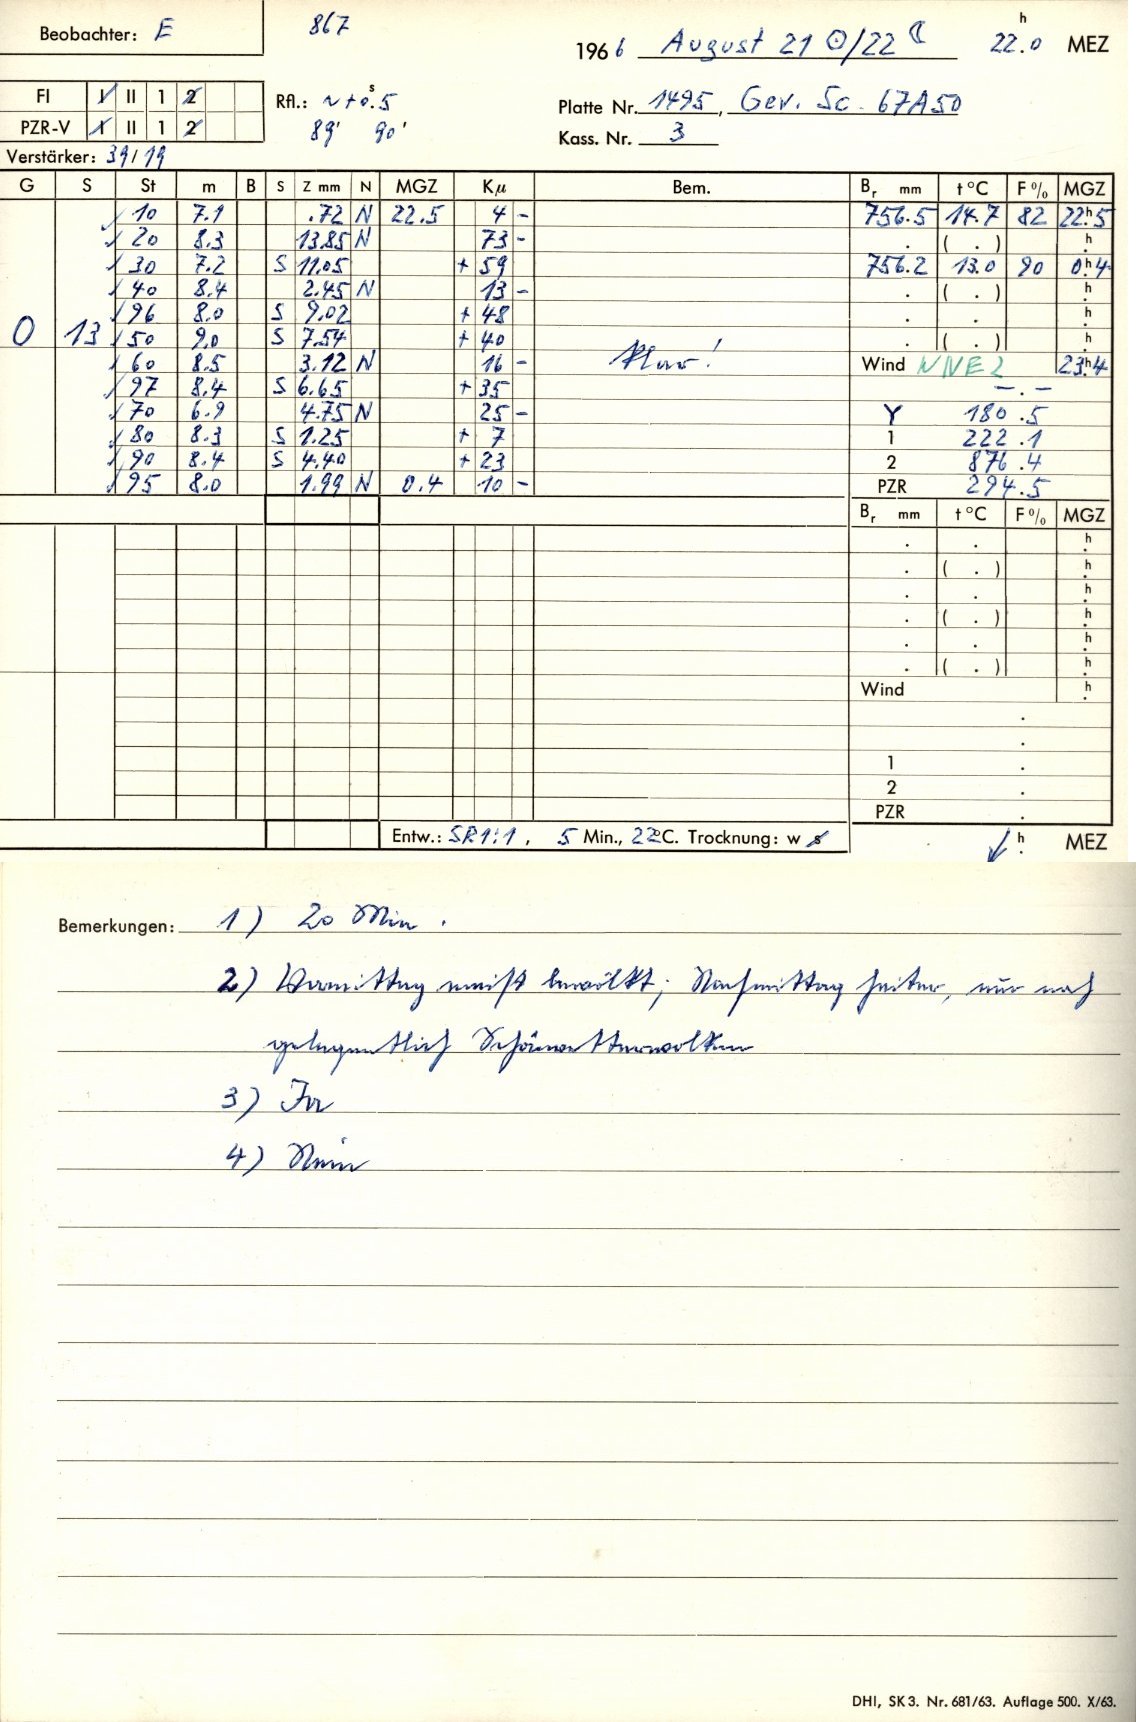 Beobachter: E 867 1966 August 21 ☉/22 ☾ 22.0 h MEZ
FI I II 1 2 Rfl.: ~ +0.5 s Platte Nr. 1495, Gev. Sc. 67A50
PZR-V I II 1 2 89' 90' Kass. Nr. 3
Verstärker: 39/19
G S St m B S Z mm N MGZ Kμ Bem. Br mm t °C F % MGZ
10 7.1 .72 N 22.5 4 - 756.5 14.7 82 22h5
20 8.3 13.85 N 73 - . ( . ) h
30 7.2 S 11.05 + 59 756.2 13.0 90 0h4
40 8.4 2.45 N 13 - . ( . ) h
96 8.0 S 9.02 + 48 . . h
0 13 50 9.0 S 7.54 + 40 . ( . ) h
60 8.5 3.12 N 16 - Klar! Wind WNE 2 23h4
97 8.4 S 6.65 + 35 - . -
70 6.9 4.75 N 25 - Y 180.5
80 8.3 S 1.25 + 7 1 222.1
90 8.4 S 4.40 + 23 2 876.4
95 8.0 1.99 N 0.4 10 - PZR 294.5
Br mm t °C F % MGZ
. . h
. ( . ) h
. . h
. ( . ) h
. . h
. ( . ) h
Wind h
.
.
1 .
2 .
PZR .
Entw.: SR 1:1, 5 Min., 22°C. Trocknung: w s h MEZ
Bemerkungen: 1) 20 Min.
2) Vormittag meist bewölkt; Nachmittag heiter, nur noch
gelegentlich Schönwetterwolken
3) Ja
4) Nein
DHI, SK 3. Nr. 681/63. Auflage 500. X/63.